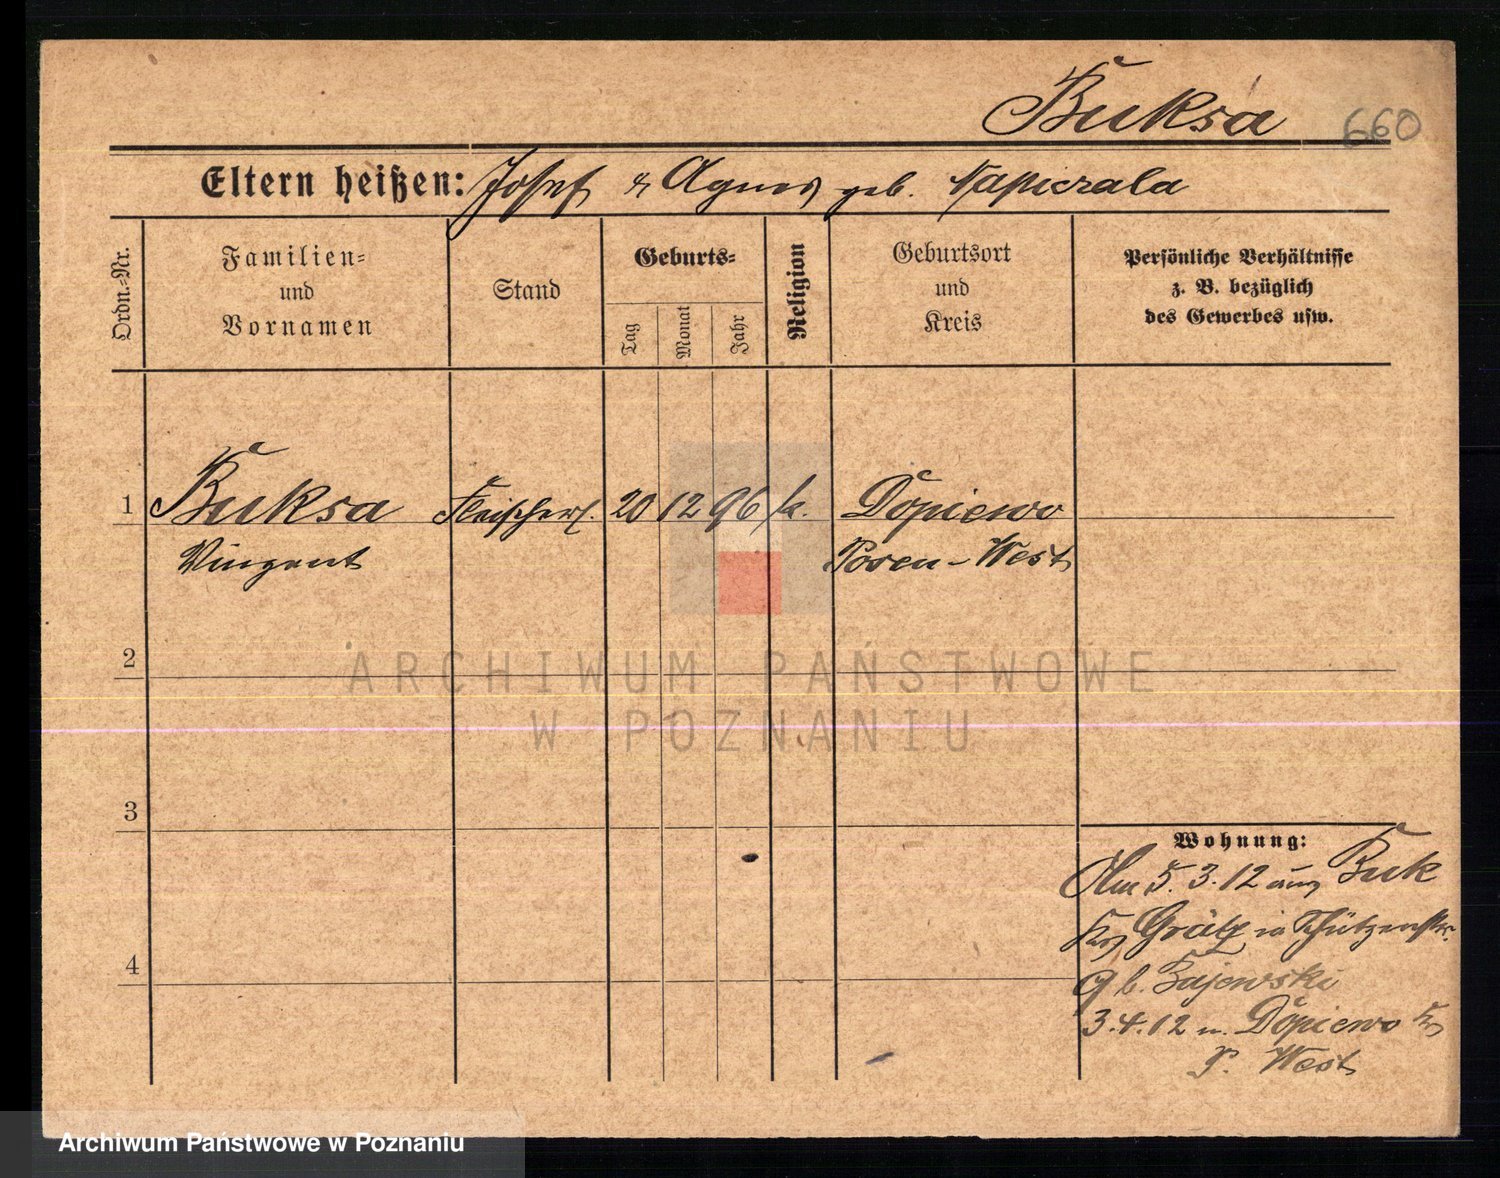 Buksa 660
Eltern heißen: Josef & Agnes geb. Napierala
Ordn.-Nr.
Familien-
und
Vornamen
Stand
Geburts-
Tag
Monat
Jahr
Religion
Geburtsort
und
Kreis
Persönliche Verhältnisse
z. B. bezüglich
des Gewerbes usw.
1 Buksa Fleischerl. 20 12 96 k. Dopiewo
Vinzent Posen-West
2
3
4
Wohnung:
Am 5.3.12 aus Buk
Krs Grätz in Schützenstr.
9 b. Zajewski
3.4.12 n. Dopiewo Krs
P. West
ARCHIWUM PAŃSTWOWE
W POZNANIU
Archiwum Państwowe w Poznaniu